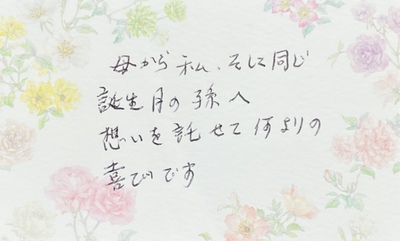 母から私、そして同じ
誕生月の孫へ
想いを託せて何よりの
喜びです